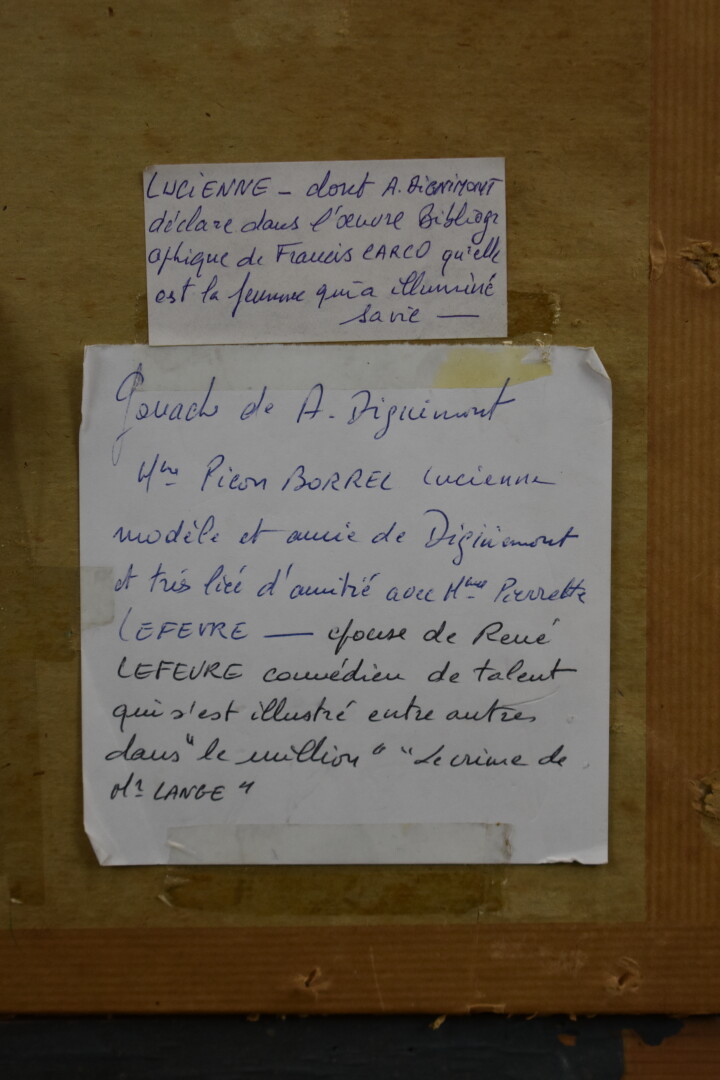 LUCIENNE — dont A. DIGNIMONT
déclare dans l'œuvre Bibliogr
aphique de Francis CARCO qu'elle
est la femme qui a illuminé
sa vie —
Gouache de A. Diguimont
Mme Picon BORREL Lucienne
modèle et amie de Diginemont
et très liée d'amitié avec Mme Pierrette
LEFEVRE — épouse de René
LEFEVRE comédien de talent
qui s'est illustré entre autres
dans "le million" "Le crime de
Mr LANGE"